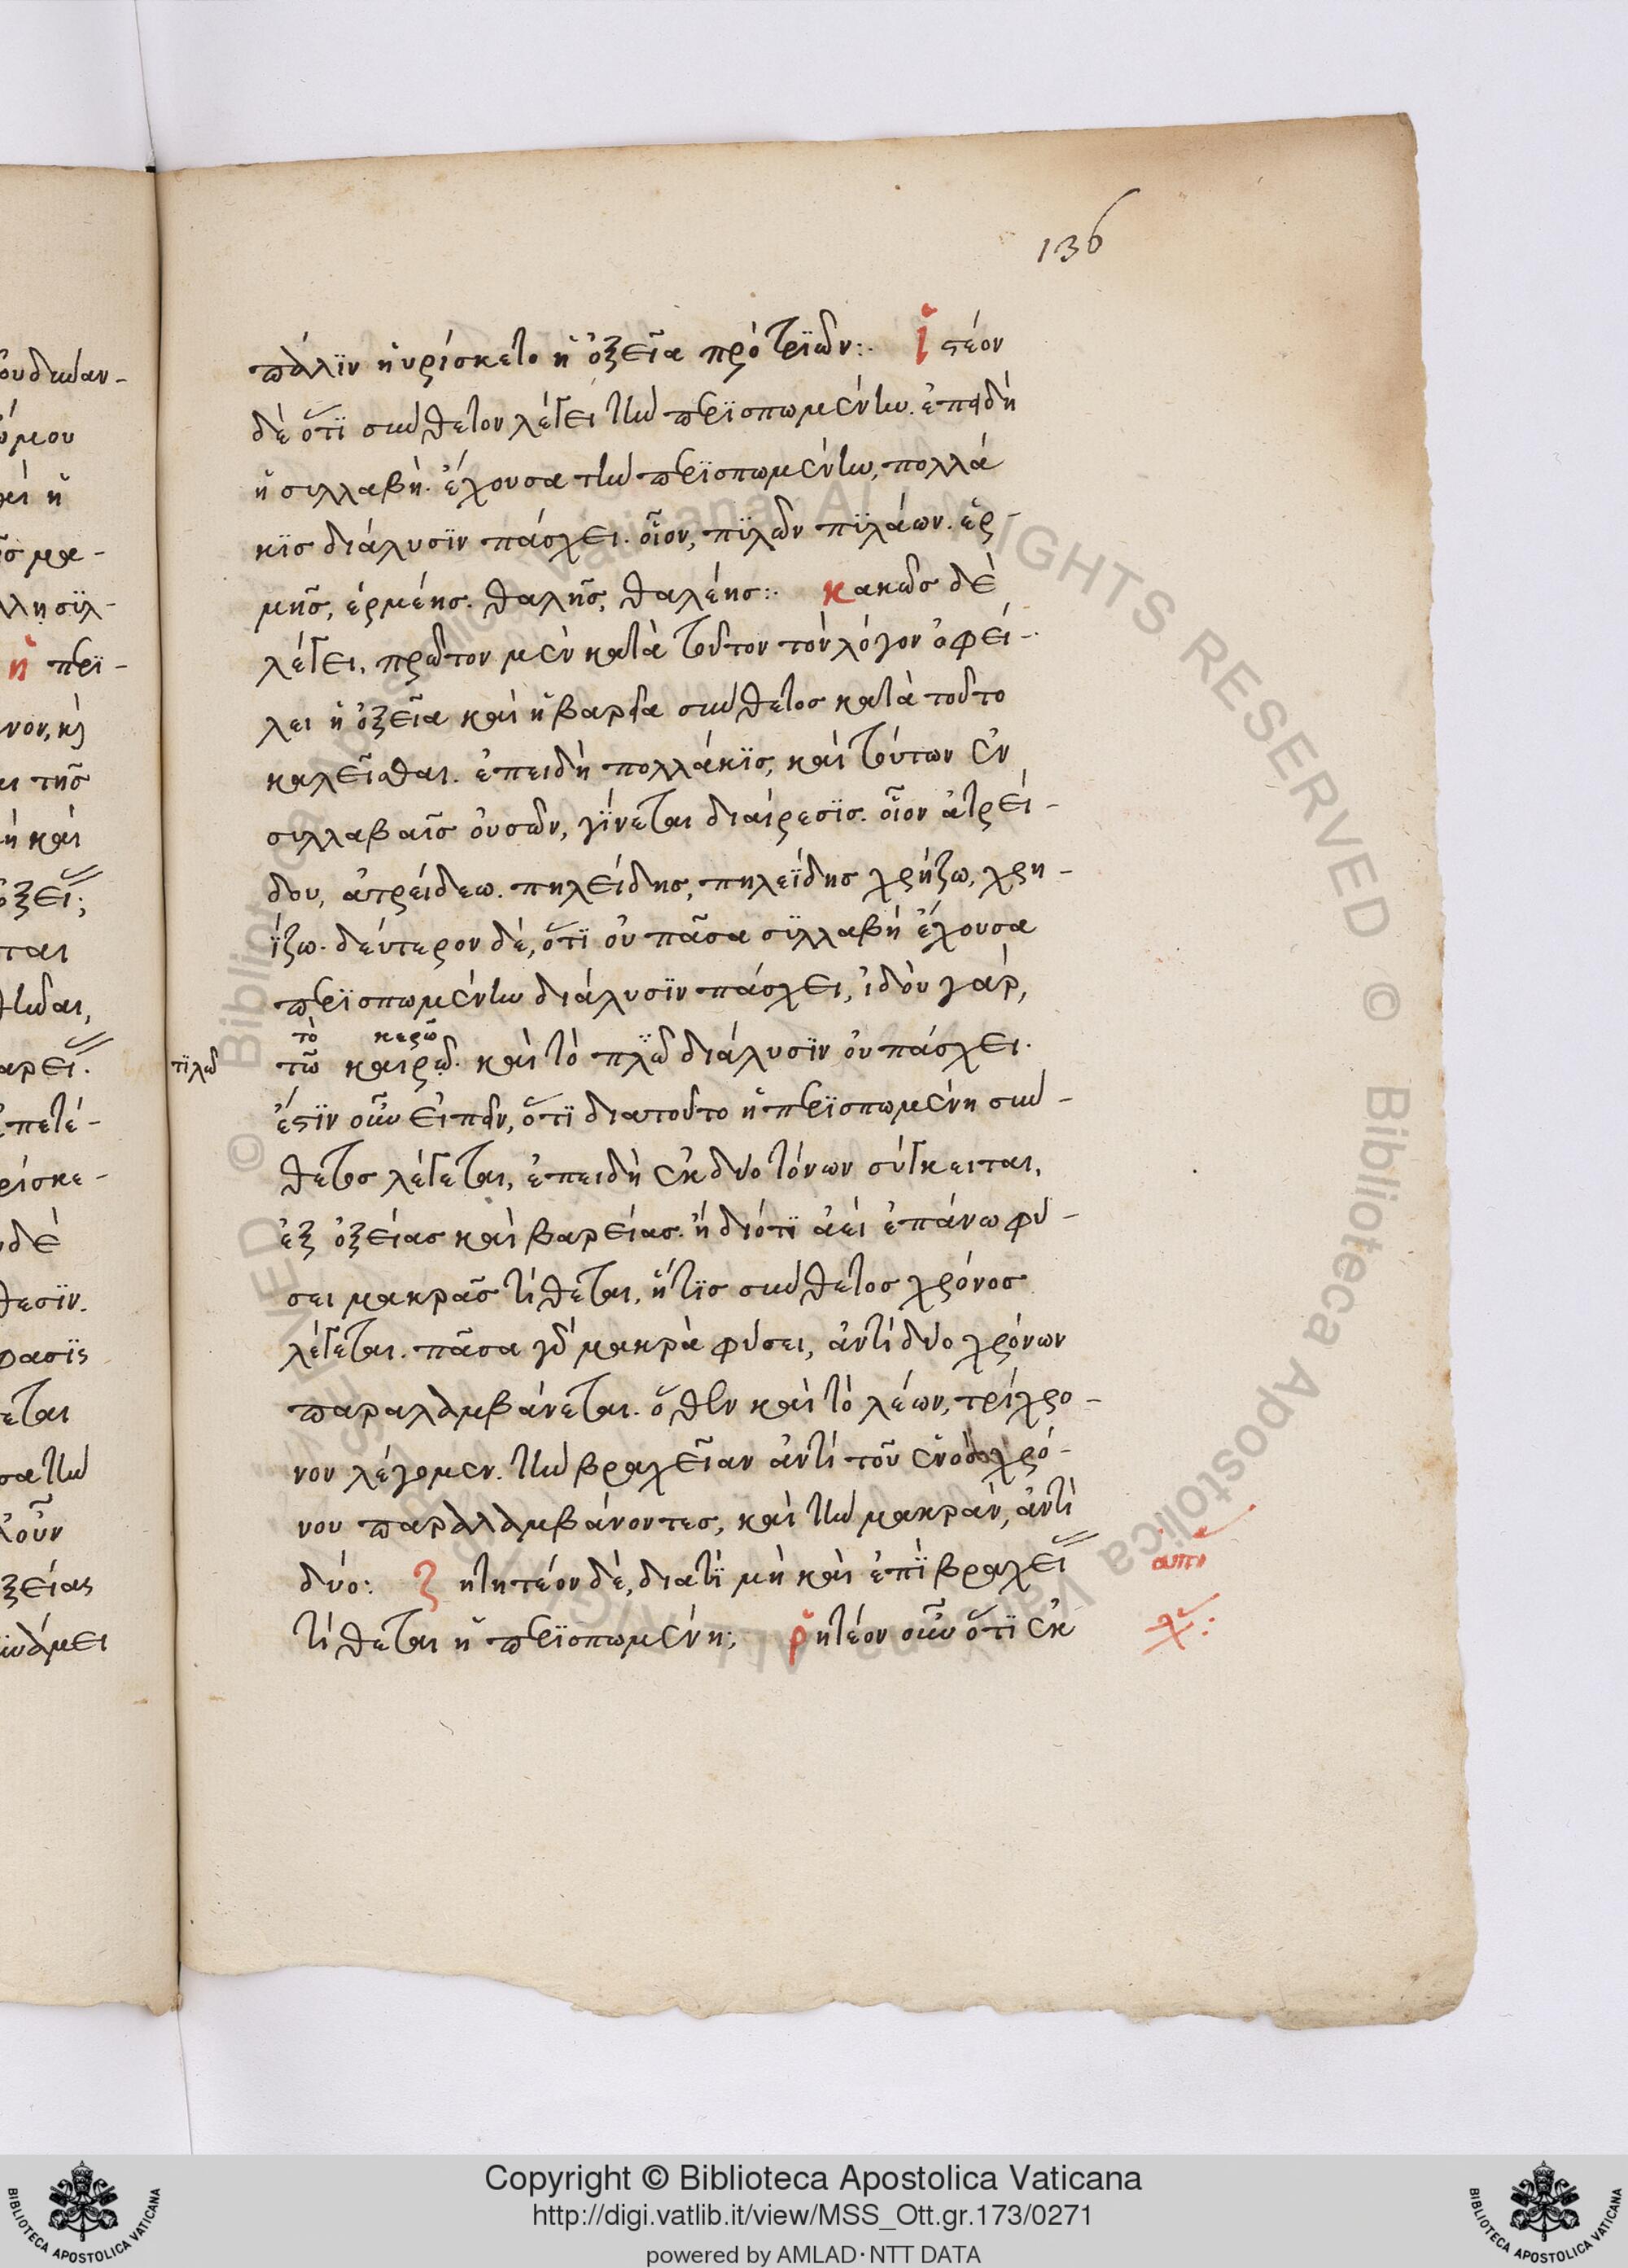 136
πάλϊν ηὑρίσκετο ἡ ὀξεῖα πρὸ τριῶν:. ἰστέον
δὲ ὅτϊ σύνθετον λέγει τὴν περϊσπωμένην. ἐπειδὴ
ἡ συλλαβὴ ἔχουσα τὴν περϊσπωμένην, πολλά
κϊς διάλυσϊν πάσχει. οἷον, πϋλῶν πϋλάων. ἑρ-
μῆς, ἑρμέης. θαλῆς, θαλέης:. κακῶς δὲ
λέγει, πρῶτον μὲν κατὰ τοῦτον τὸν λόγον ὀφεί-
λει ἡ ὀξεῖα καὶ ἡ βαρεῖα σύνθετος κατὰ τοῦτο
καλεῖσθαι. ἐπειδὴ πολλάκϊς, καὶ τούτων ἐν
συλλαβαῖς οὐσῶν, γΐνεται διαίρεσϊς. οἷον ἀτρεί-
δου, ἀτρείδεω. πηλείδης, πηλεΐδης χρήζω, χρη-
ΐζω. δεύτερον δὲ, ὅτϊ οὐ πᾶσα σϋλλαβὴ ἔχουσα
περϊσπωμένην διάλυσϊν πάσχει, ἰδοὺ γὰρ,
τὸ κερῶ
πϊλῶ
τῶ καιρῷ. καὶ τὸ πλῶ διάλυσϊν οὐ πάσχει.
ἔστϊν οὖν εἰπεῖν, ὅτϊ διατοῦτο ἡ περϊσπωμένη σύν-
θετος λέγεται, ἐπειδὴ ἐκ δύο τόνων σύγκειται,
ἐξ ὀξείας καὶ βαρείας. ἢ διότϊ ἀεὶ ἐπάνω φύ-
σει μακρᾶς τίθεται, ἥτϊς σύνθετος χρόνος
λέγεται. πᾶσα γὰρ μακρὰ φύσει, ἀντὶ δύο χρόνων
παραλαμβάνεται. ὅθεν καὶ τὸ λέων, τρίχρο-
νον λέγομεν. τὴν βραχεῖαν ἀντὶ τοῦ ἑνὸς χρό-
νου παραλαμβάνοντες, καὶ τὴν μακρὰν, ἀντὶ
δύο: ζητητέον δὲ, διατΐ μὴ καὶ ἐπὶ βραχεῖ
ἀπο
τίθεται ἡ περϊσπωμένη; ῥητέον οὖν ὅτϊ ἐκ
Copyright © Biblioteca Apostolica Vaticana
http://digi.vatlib.it/view/MSS_Ott.gr.173/0271
powered by AMLAD·NTT DATA